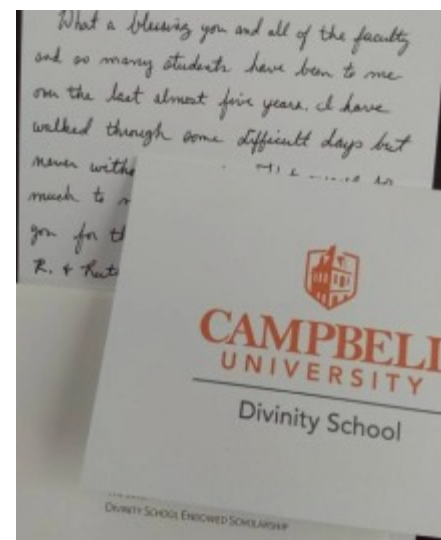 What a blessing you and all of the faculty
and so many students have been to me
over the last almost five years. I have
walked through some difficult days but
never
much to
you for
R. &
CAMPBELL
UNIVERSITY
Divinity School
DIVINITY SCHOOL ENDOWED SCHOLARSHIP